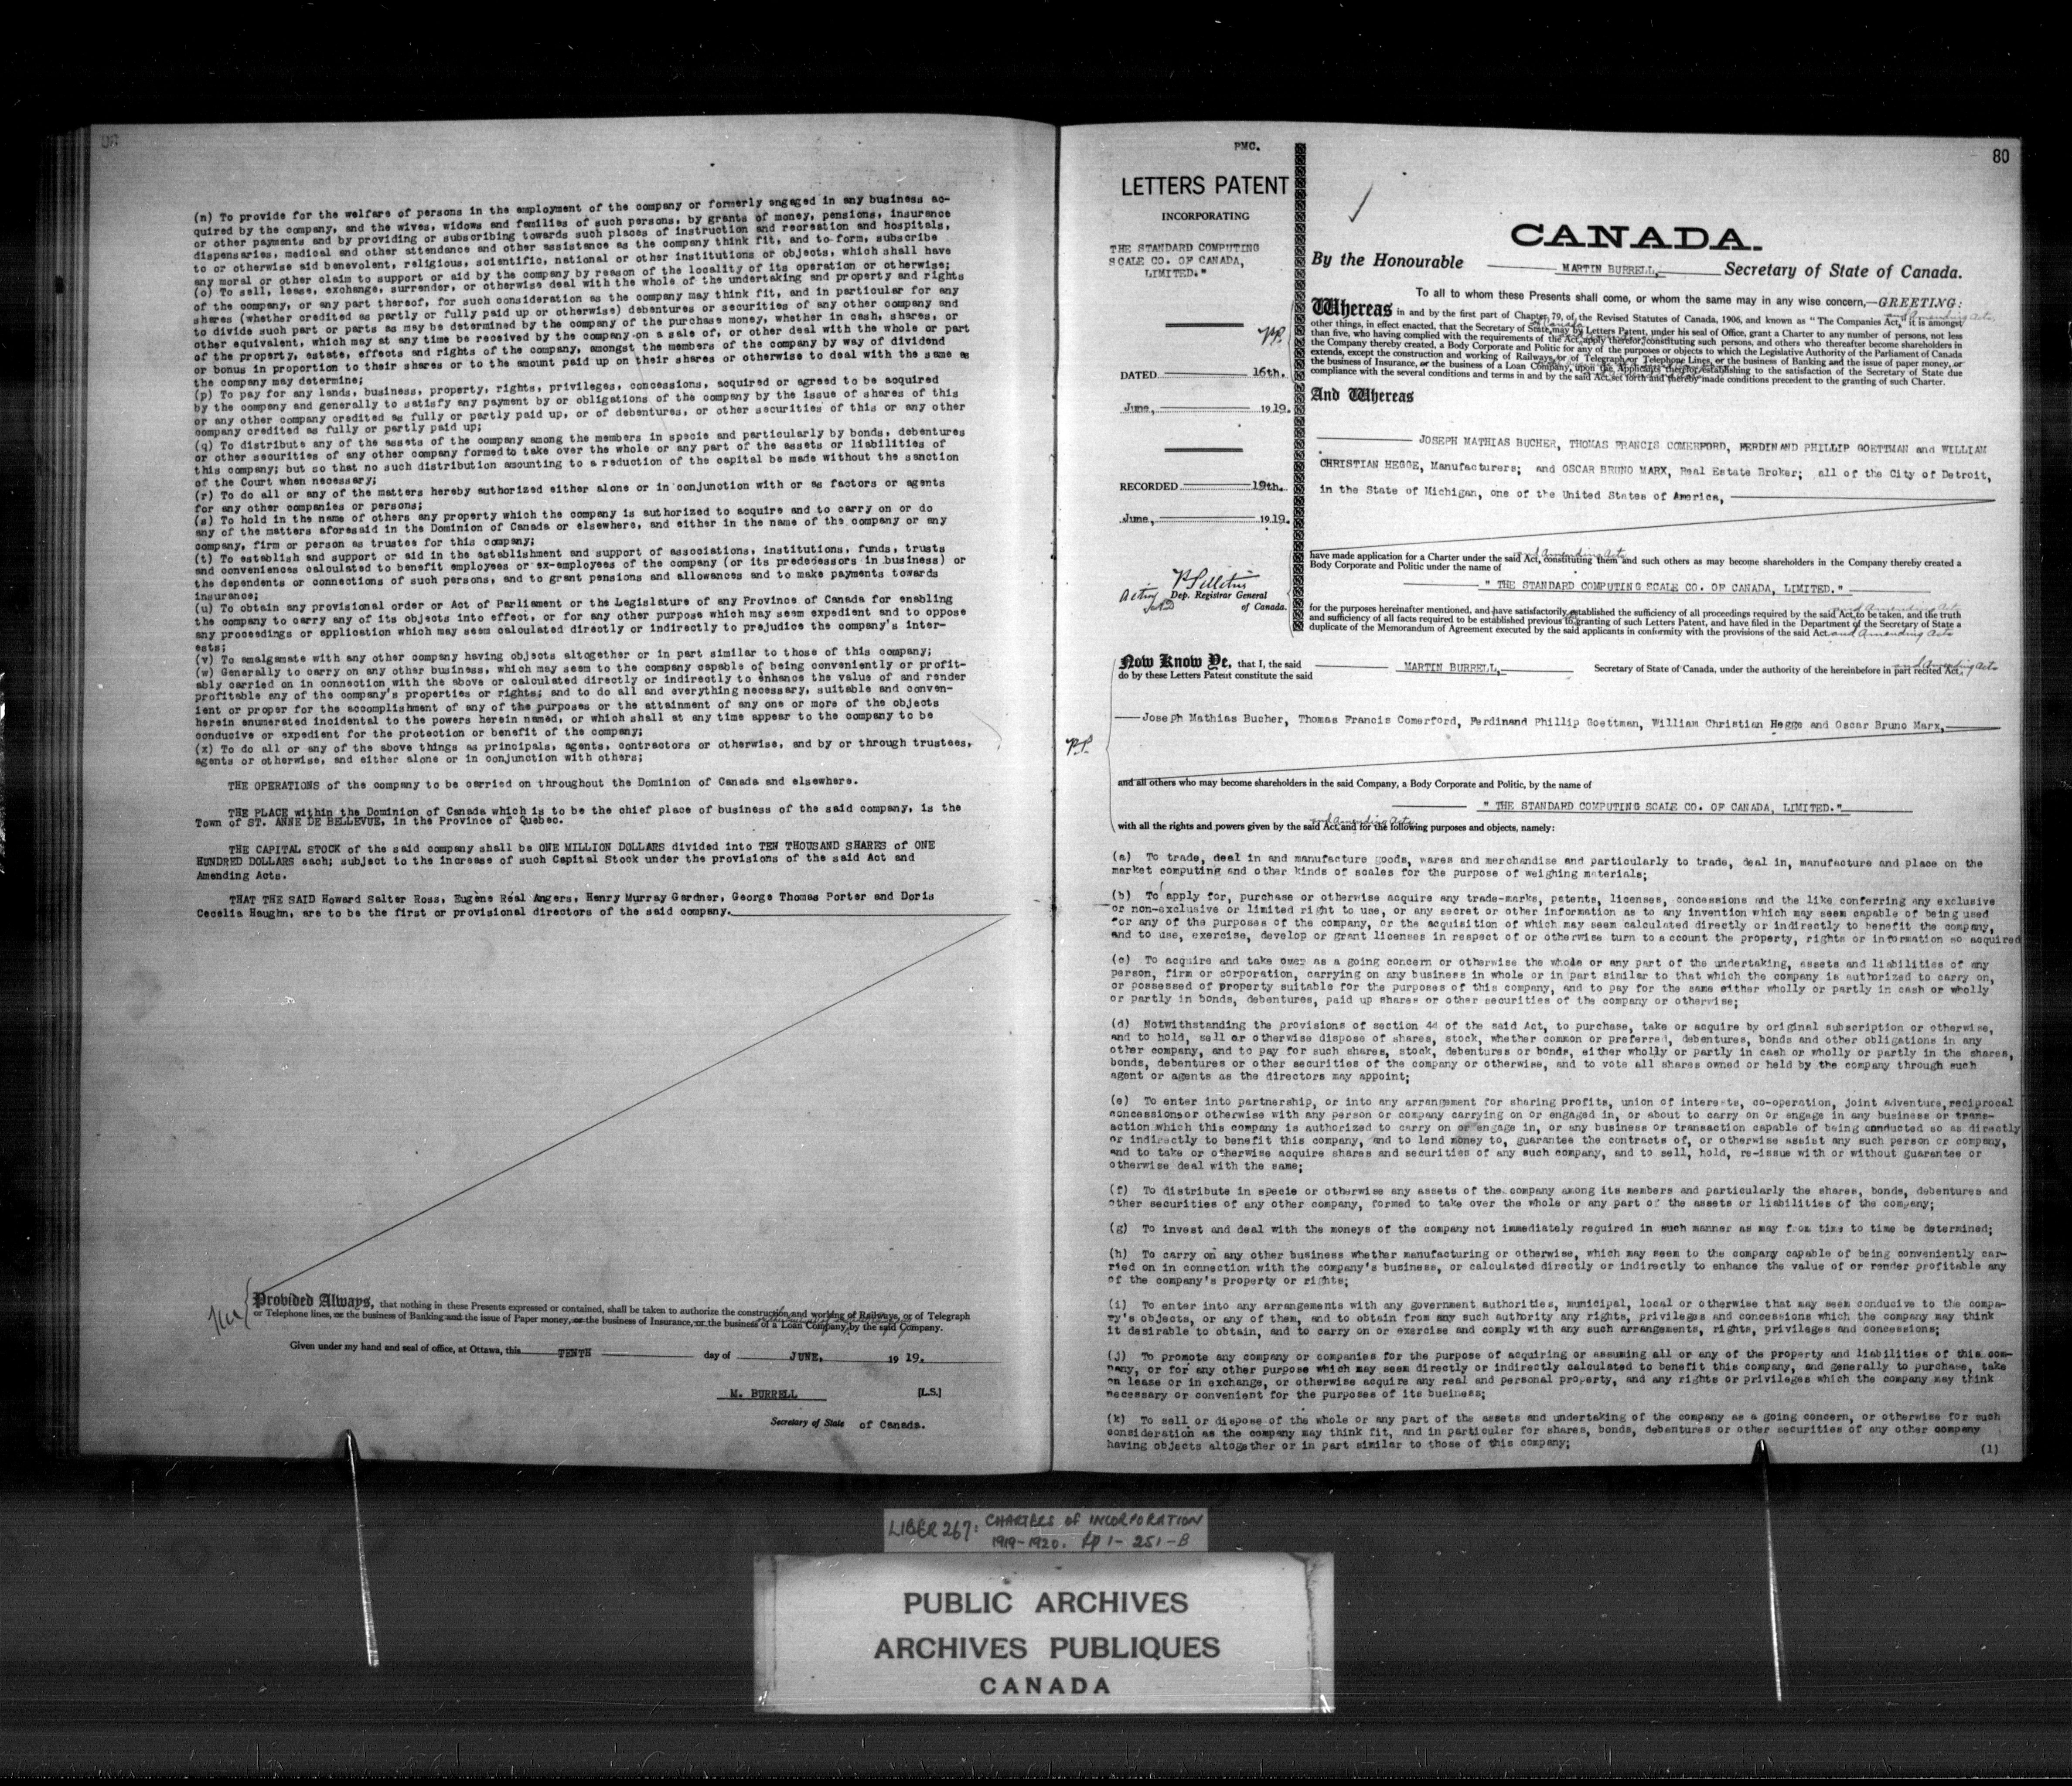 (n) To provide for the welfare of persons in the employment of the company or formerly engaged in any business ac-
quired by the company, and the wives, widows and families of such persons, by grants of money, pensions, insurance
or other payments and by providing or subscribing towards such places of instruction and recreation and hospitals,
dispensaries, medical and other attendance and other assistance as the company think fit, and to form, subscribe
to or otherwise aid benevolent, religious, scientific, national or other institutions or objects, which shall have
any moral or other claim to support or aid by the company by reason of the locality of its operation or otherwise;
(o) To sell, lease, exchange, surrender, or otherwise deal with the whole of the undertaking and property and rights
of the company, or any part thereof, for such consideration as the company may think fit, and in particular for any
shares (whether credited as partly or fully paid up or otherwise) debentures or securities of any other company and
to divide such part or parts as may be determined by the company of the purchase money, whether in cash, shares, or
other equivalent, which may at any time be received by the company on a sale of, or other deal with the whole or part
of the property, estate, effects and rights of the company, amongst the members of the company by way of dividend
or bonus in proportion to their shares or to the amount paid up on their shares or otherwise to deal with the same as
the company may determine;
(p) To pay for any lands, business, property, rights, privileges, concessions, acquired or agreed to be acquired
by the company and generally to satisfy any payment by or obligations of the company by the issue of shares of this
or any other company credited as fully or partly paid up, or of debentures, or other securities of this or any other
company credited as fully or partly paid up;
(q) To distribute any of the assets of the company among the members in specie and particularly by bonds, debentures
or other securities of any other company formed to take over the whole or any part of the assets or liabilities of
this company; but so that no such distribution amounting to a reduction of the capital be made without the sanction
of the Court when necessary;
(r) To do all or any of the matters hereby authorized either alone or in conjunction with or as factors or agents
for any other companies or persons;
(s) To hold in the name of others any property which the company is authorized to acquire and to carry on or do
any of the matters aforesaid in the Dominion of Canada or elsewhere, and either in the name of the company or any
company, firm or person as trustee for this company;
(t) To establish and support or aid in the establishment and support of associations, institutions, funds, trusts
and conveniences calculated to benefit employees or ex-employees of the company (or its predecessors in business) or
the dependents or connections of such persons, and to grant pensions and allowances and to make payments towards
insurance;
(u) To obtain any provisional order or Act of Parliament or the Legislature of any Province of Canada for enabling
the company to carry any of its objects into effect, or for any other purpose which may seem expedient and to oppose
any proceedings or application which may seem calculated directly or indirectly to prejudice the company's inter-
ests;
(v) To amalgamate with any other company having objects altogether or in part similar to those of this company;
(w) Generally to carry on any other business, which may seem to the company capable of being conveniently or profit-
ably carried on in connection with the above or calculated directly or indirectly to enhance the value of and render
profitable any of the company's properties or rights; and to do all and everything necessary, suitable and conven-
ient or proper for the accomplishment of any of the purposes or the attainment of any one or more of the objects
herein enumerated incidental to the powers herein named, or which shall at any time appear to the company to be
conducive or expedient for the protection or benefit of the company;
(x) To do all or any of the above things as principals, agents, contractors or otherwise, and by or through trustees,
agents or otherwise, and either alone or in conjunction with others;
THE OPERATIONS of the company to be carried on throughout the Dominion of Canada and elsewhere.
THE PLACE within the Dominion of Canada which is to be the chief place of business of the said company, is the
Town of ST. ANNE DE BELLEVUE, in the Province of Quebec.
THE CAPITAL STOCK of the said company shall be ONE MILLION DOLLARS divided into TEN THOUSAND SHARES of ONE
HUNDRED DOLLARS each; subject to the increase of such Capital Stock under the provisions of the said Act and
Amending Acts.
THAT THE SAID Howard Salter Ross, Eugène Réal Angers, Henry Murray Gardner, George Thomas Porter and Doris
Cecelia Haughn, are to be the first or provisional directors of the said company.
Provided Always, that nothing in these Presents expressed or contained, shall be taken to authorize the construction and working of Railways, or of Telegraph
or Telephone lines, or the business of Banking and the issue of Paper money, or the business of Insurance, or the business of a Loan Company, by the said Company.
Given under my hand and seal of office, at Ottawa, this TENTH day of JUNE, 19 19.
M. BURRELL [L.S.]
Secretary of State of Canada.
PMC.
80
LETTERS PATENT
INCORPORATING
THE STANDARD COMPUTING
SCALE CO. OF CANADA,
LIMITED."
DATED 16th.
June, 1919.
RECORDED 19th.
June, 1919.
Acting Dep. Registrar General
of Canada.
CANADA.
By the Honourable MARTIN BURRELL, Secretary of State of Canada.
To all to whom these Presents shall come, or whom the same may in any wise concern,—GREETING:
Whereas in and by the first part of Chapter 79, of the Revised Statutes of Canada, 1906, and known as "The Companies Act," and Amending Acts, it is amongst
other things, in effect enacted, that the Secretary of State of Canada may by Letters Patent, under his seal of Office, grant a Charter to any number of persons, not less
than five, who having complied with the requirements of the Act, apply therefor, constituting such persons, and others who thereafter become shareholders in
the Company thereby created, a Body Corporate and Politic for any of the purposes or objects to which the Legislative Authority of the Parliament of Canada
extends, except the construction and working of Railways, or of Telegraph or Telephone Lines, or the business of Banking and the issue of paper money, or
the business of Insurance, or the business of a Loan Company, upon the Applicants therefor establishing to the satisfaction of the Secretary of State due
compliance with the several conditions and terms in and by the said Act, set forth and thereby made conditions precedent to the granting of such Charter.
And Whereas
JOSEPH MATHIAS BUCHER, THOMAS FRANCIS COMERFORD, FERDINAND PHILLIP GOETTMAN and WILLIAM
CHRISTIAN HEGGE, Manufacturers; and OSCAR BRUNO MARX, Real Estate Broker; all of the City of Detroit,
in the State of Michigan, one of the United States of America,
have made application for a Charter under the said Act, and Amending Acts constituting them and such others as may become shareholders in the Company thereby created a
Body Corporate and Politic under the name of
" THE STANDARD COMPUTING SCALE CO. OF CANADA, LIMITED."
for the purposes hereinafter mentioned, and have satisfactorily established the sufficiency of all proceedings required by the said Act and Amending Acts to be taken, and the truth
and sufficiency of all facts required to be established previous to granting of such Letters Patent, and have filed in the Department of the Secretary of State a
duplicate of the Memorandum of Agreement executed by the said applicants in conformity with the provisions of the said Act and Amending Acts
Now Know Ye, that I, the said MARTIN BURRELL, Secretary of State of Canada, under the authority of the hereinbefore in part recited Act, and Amending Acts
do by these Letters Patent constitute the said
Joseph Mathias Bucher, Thomas Francis Comerford, Ferdinand Phillip Goettman, William Christian Hegge and Oscar Bruno Marx,
P.P.
and all others who may become shareholders in the said Company, a Body Corporate and Politic, by the name of
" THE STANDARD COMPUTING SCALE CO. OF CANADA, LIMITED."
with all the rights and powers given by the said Act, and Amending Acts and for the following purposes and objects, namely:
(a) To trade, deal in and manufacture goods, wares and merchandise and particularly to trade, deal in, manufacture and place on the
market computing and other kinds of scales for the purpose of weighing materials;
(b) To apply for, purchase or otherwise acquire any trade-marks, patents, licenses, concessions and the like conferring any exclusive
or non-exclusive or limited right to use, or any secret or other information as to any invention which may seem capable of being used
for any of the purposes of the company, or the acquisition of which may seem calculated directly or indirectly to benefit the company,
and to use, exercise, develop or grant licenses in respect of or otherwise turn to account the property, rights or information so acquired
(c) To acquire and take over as a going concern or otherwise the whole or any part of the undertaking, assets and liabilities of any
person, firm or corporation, carrying on any business in whole or in part similar to that which the company is authorized to carry on,
or possessed of property suitable for the purposes of this company, and to pay for the same either wholly or partly in cash or wholly
or partly in bonds, debentures, paid up shares or other securities of the company or otherwise;
(d) Notwithstanding the provisions of section 44 of the said Act, to purchase, take or acquire by original subscription or otherwise,
and to hold, sell or otherwise dispose of shares, stock, whether common or preferred, debentures, bonds and other obligations in any
other company, and to pay for such shares, stock, debentures or bonds, either wholly or partly in cash or wholly or partly in the shares,
bonds, debentures or other securities of the company or otherwise, and to vote all shares owned or held by the company through such
agent or agents as the directors may appoint;
(e) To enter into partnership, or into any arrangement for sharing profits, union of interests, co-operation, joint adventure, reciprocal
concessions or otherwise with any person or company carrying on or engaged in, or about to carry on or engage in any business or trans-
action which this company is authorized to carry on or engage in, or any business or transaction capable of being conducted so as directly
or indirectly to benefit this company, and to lend money to, guarantee the contracts of, or otherwise assist any such person or company,
and to take or otherwise acquire shares and securities of any such company, and to sell, hold, re-issue with or without guarantee or
otherwise deal with the same;
(f) To distribute in specie or otherwise any assets of the company among its members and particularly the shares, bonds, debentures and
other securities of any other company, formed to take over the whole or any part of the assets or liabilities of the company;
(g) To invest and deal with the moneys of the company not immediately required in such manner as may from time to time be determined;
(h) To carry on any other business whether manufacturing or otherwise, which may seem to the company capable of being conveniently car-
ried on in connection with the company's business, or calculated directly or indirectly to enhance the value of or render profitable any
of the company's property or rights;
(i) To enter into any arrangements with any government authorities, municipal, local or otherwise that may seem conducive to the compa-
ny's objects, or any of them, and to obtain from any such authority any rights, privileges and concessions which the company may think
it desirable to obtain, and to carry on or exercise and comply with any such arrangements, rights, privileges and concessions;
(j) To promote any company or companies for the purpose of acquiring or assuming all or any of the property and liabilities of this com-
pany, or for any other purpose which may seem directly or indirectly calculated to benefit this company, and generally to purchase, take
on lease or in exchange, or otherwise acquire any real and personal property, and any rights or privileges which the company may think
necessary or convenient for the purposes of its business;
(k) To sell or dispose of the whole or any part of the assets and undertaking of the company as a going concern, or otherwise for such
consideration as the company may think fit, and in particular for shares, bonds, debentures or other securities of any other company
having objects altogether or in part similar to those of this company;
(1)
LIBER 267: CHARTERS OF INCORPORATION
1919-1920. pp 1-251-B
PUBLIC ARCHIVES
ARCHIVES PUBLIQUES
CANADA